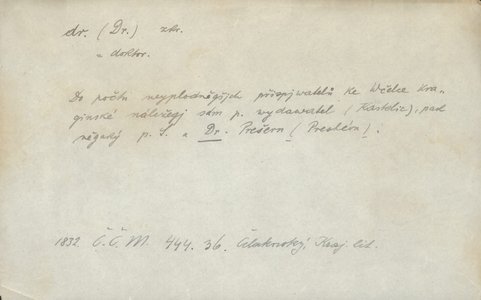 dr. (Dr.) zkr.
= doktor.
Do počtu neyplodnějších přispjwatelů ke Wčelce Kra-
ginské náležegj sám p. wydawatel (Kastelic), pak
něgaký p. S. a Dr. Prešern (Preshérn).
1832. Č.Č.M. 444. 36. Čelakovský, Kraj. lit.